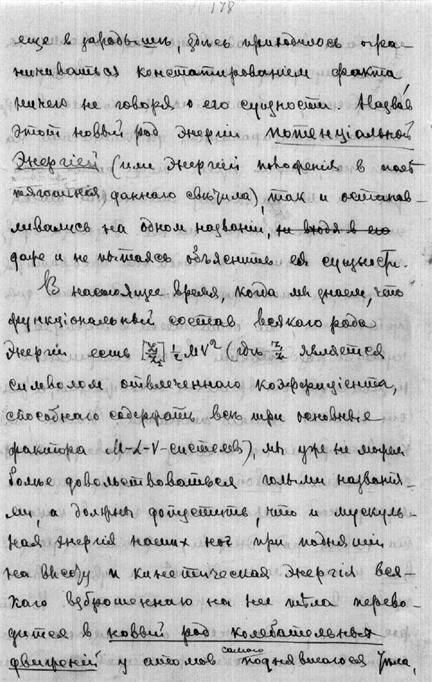 178
еще в зародышѣ, здѣсь приходилось огра-
ничиваться констатированіем факта,
ничего не говоря о его сущности. Назвав
этот новый род энергіи потенціальной
энергіей (или энергіей положенія в полѣ
тяготѣнія даннаго свѣтила), так и останав-
ливались на одном названіи, не входя в его
даже и не пытаясь объяснить ея сущность.
В настоящее время, когда мы знаем, что
функціональный состав всякаго рода
энергіи есть ½ MV² (гдѣ является
символом отвлеченнаго коэффиціента,
способнаго содержать всѣ три основные
фактора M-L-V-системы), мы уже не можем
болѣе довольствоваться голыми названія-
ми, а должны допустить, что и мускуль-
ная энергія наших ног при поднятіи
на высоту и кинетическая энергія вся-
каго взброшеннаго на нее тѣла перево-
дится в новый род колебательных
движеній у атомов самого поднявшагося тѣла,